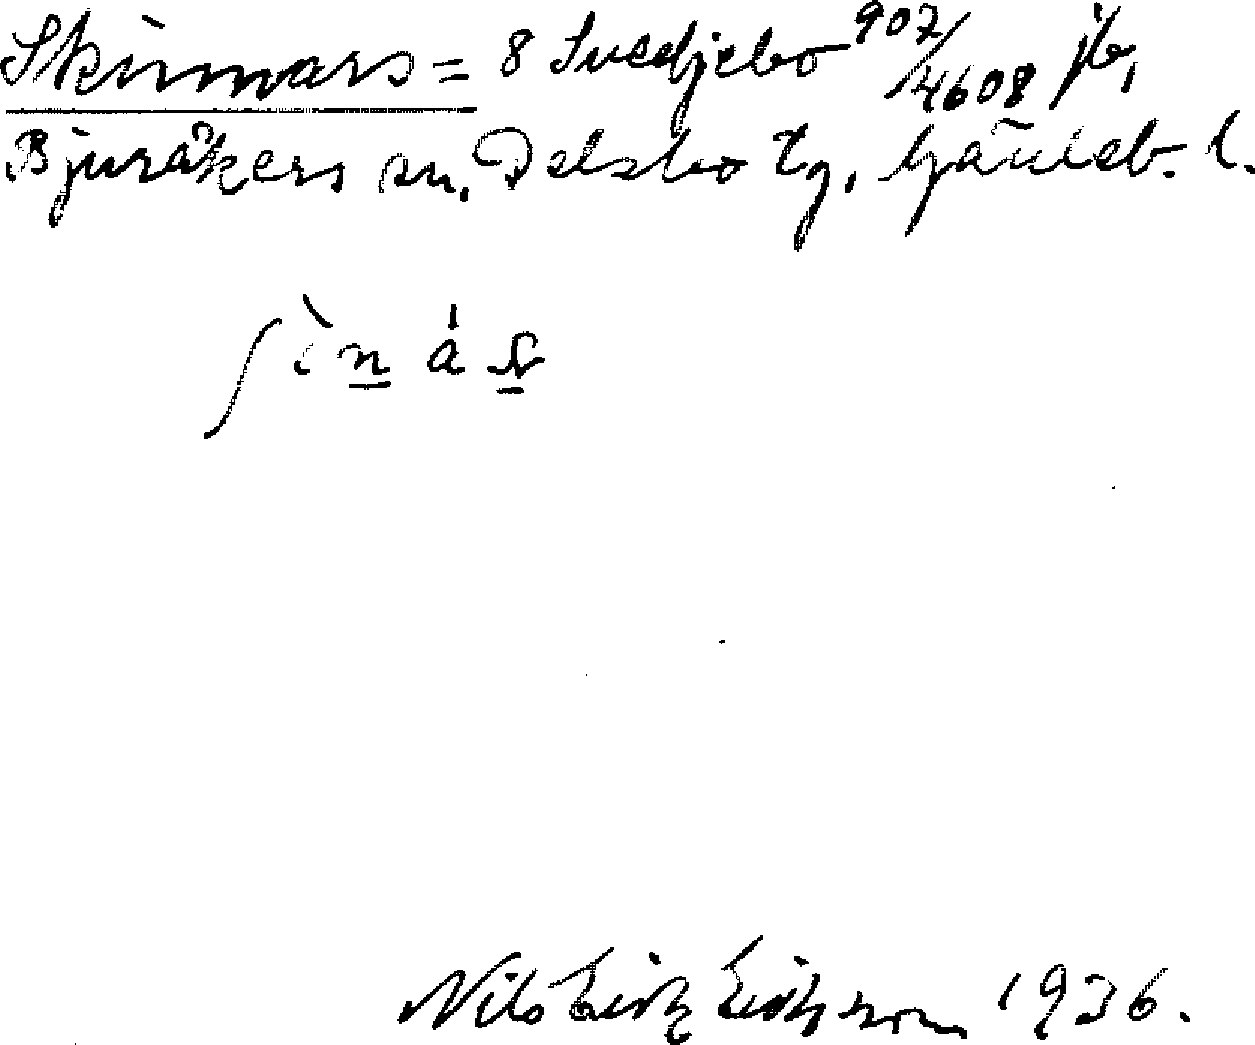 Skinnars = 8 Svedjebo 907/4608 jb,
Bjuråkers sn. Delsbo tg, Gävleb. l.
Nils Eric Ericsson 1936.